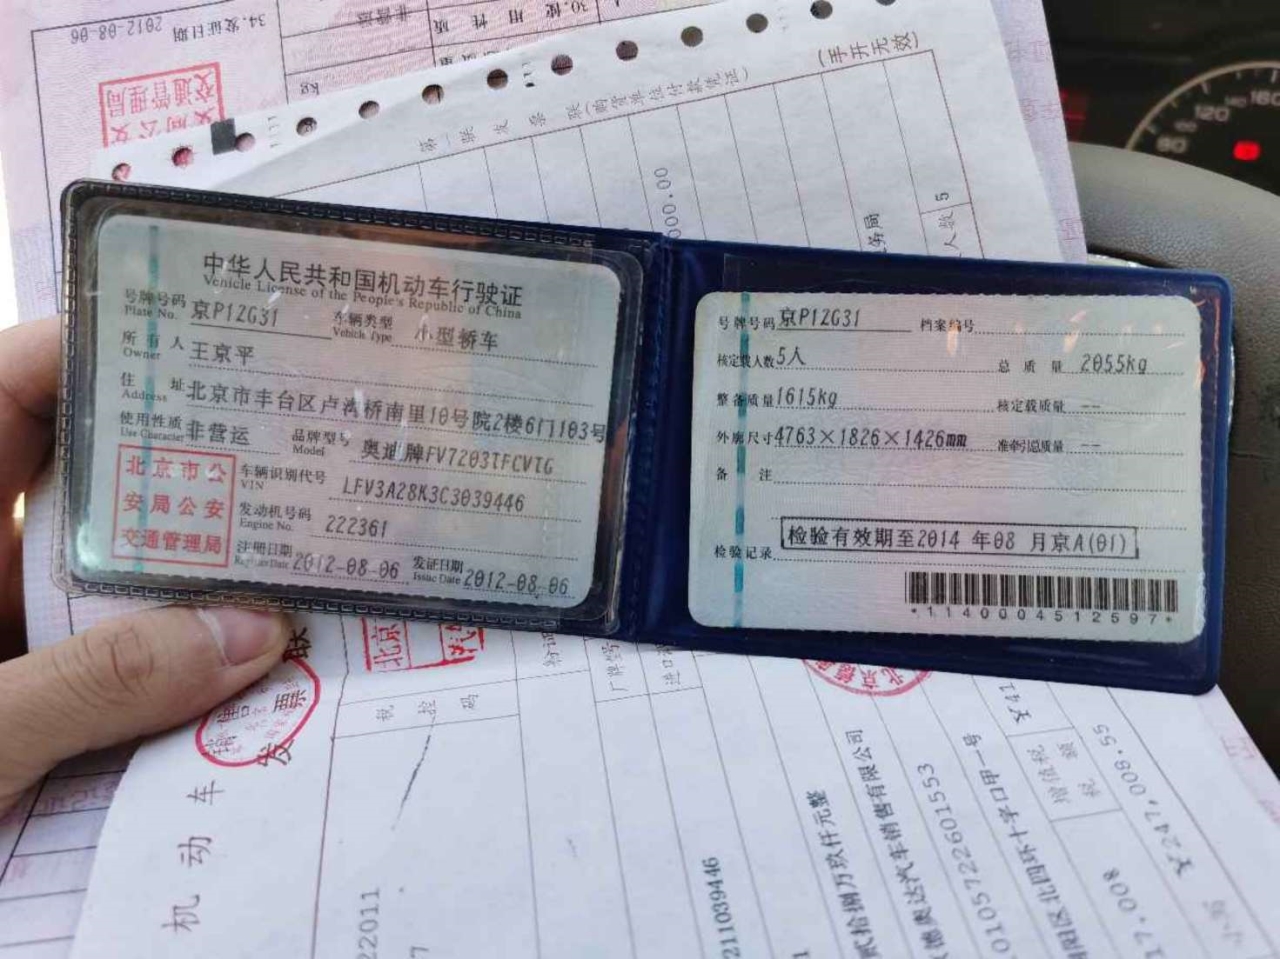 中华人民共和国机动车行驶证
Vehicle License of the People's Republic of China
号牌号码 京P1ZG31 车辆类型 小型轿车
Plate No. Vehicle Type
所有人 王京平
Owner
住址 北京市丰台区卢沟桥南里10号院2楼6门103号
Address
使用性质 非营运 品牌型号 奥迪牌FV7203TFCVTG
Use Character Model
北京市公
安局公安
交通管理局
车辆识别代号 LFV3A28K3C3039446
VIN
发动机号码 222361
Engine No.
注册日期 2012-08-06 发证日期 2012-08-06
Register Date Issue Date
号牌号码 京P1ZG31 档案编号
核定载人数 5人 总质量 2055kg
整备质量 1615kg 核定载质量 --
外廓尺寸 4763×1826×1426mm 准牵引总质量 --
备注
检验记录 检验有效期至2014 年08 月京A(01)
*1140004512597*
34.发证日期 2012-08-06
交通管理局
30.使用性质
非营运
kg
(手开无效)
第一联 发票联(购货单位付款凭证)
000.00
务局
人数 5
机动车
发票联
税控码
22011
211039446
贰拾捌万玖仟元整
德奥达汽车销售有限公司
0105722601553
阳区北四环十字口甲一号
增值税
税额
￥41
￥247,008.55
17.008